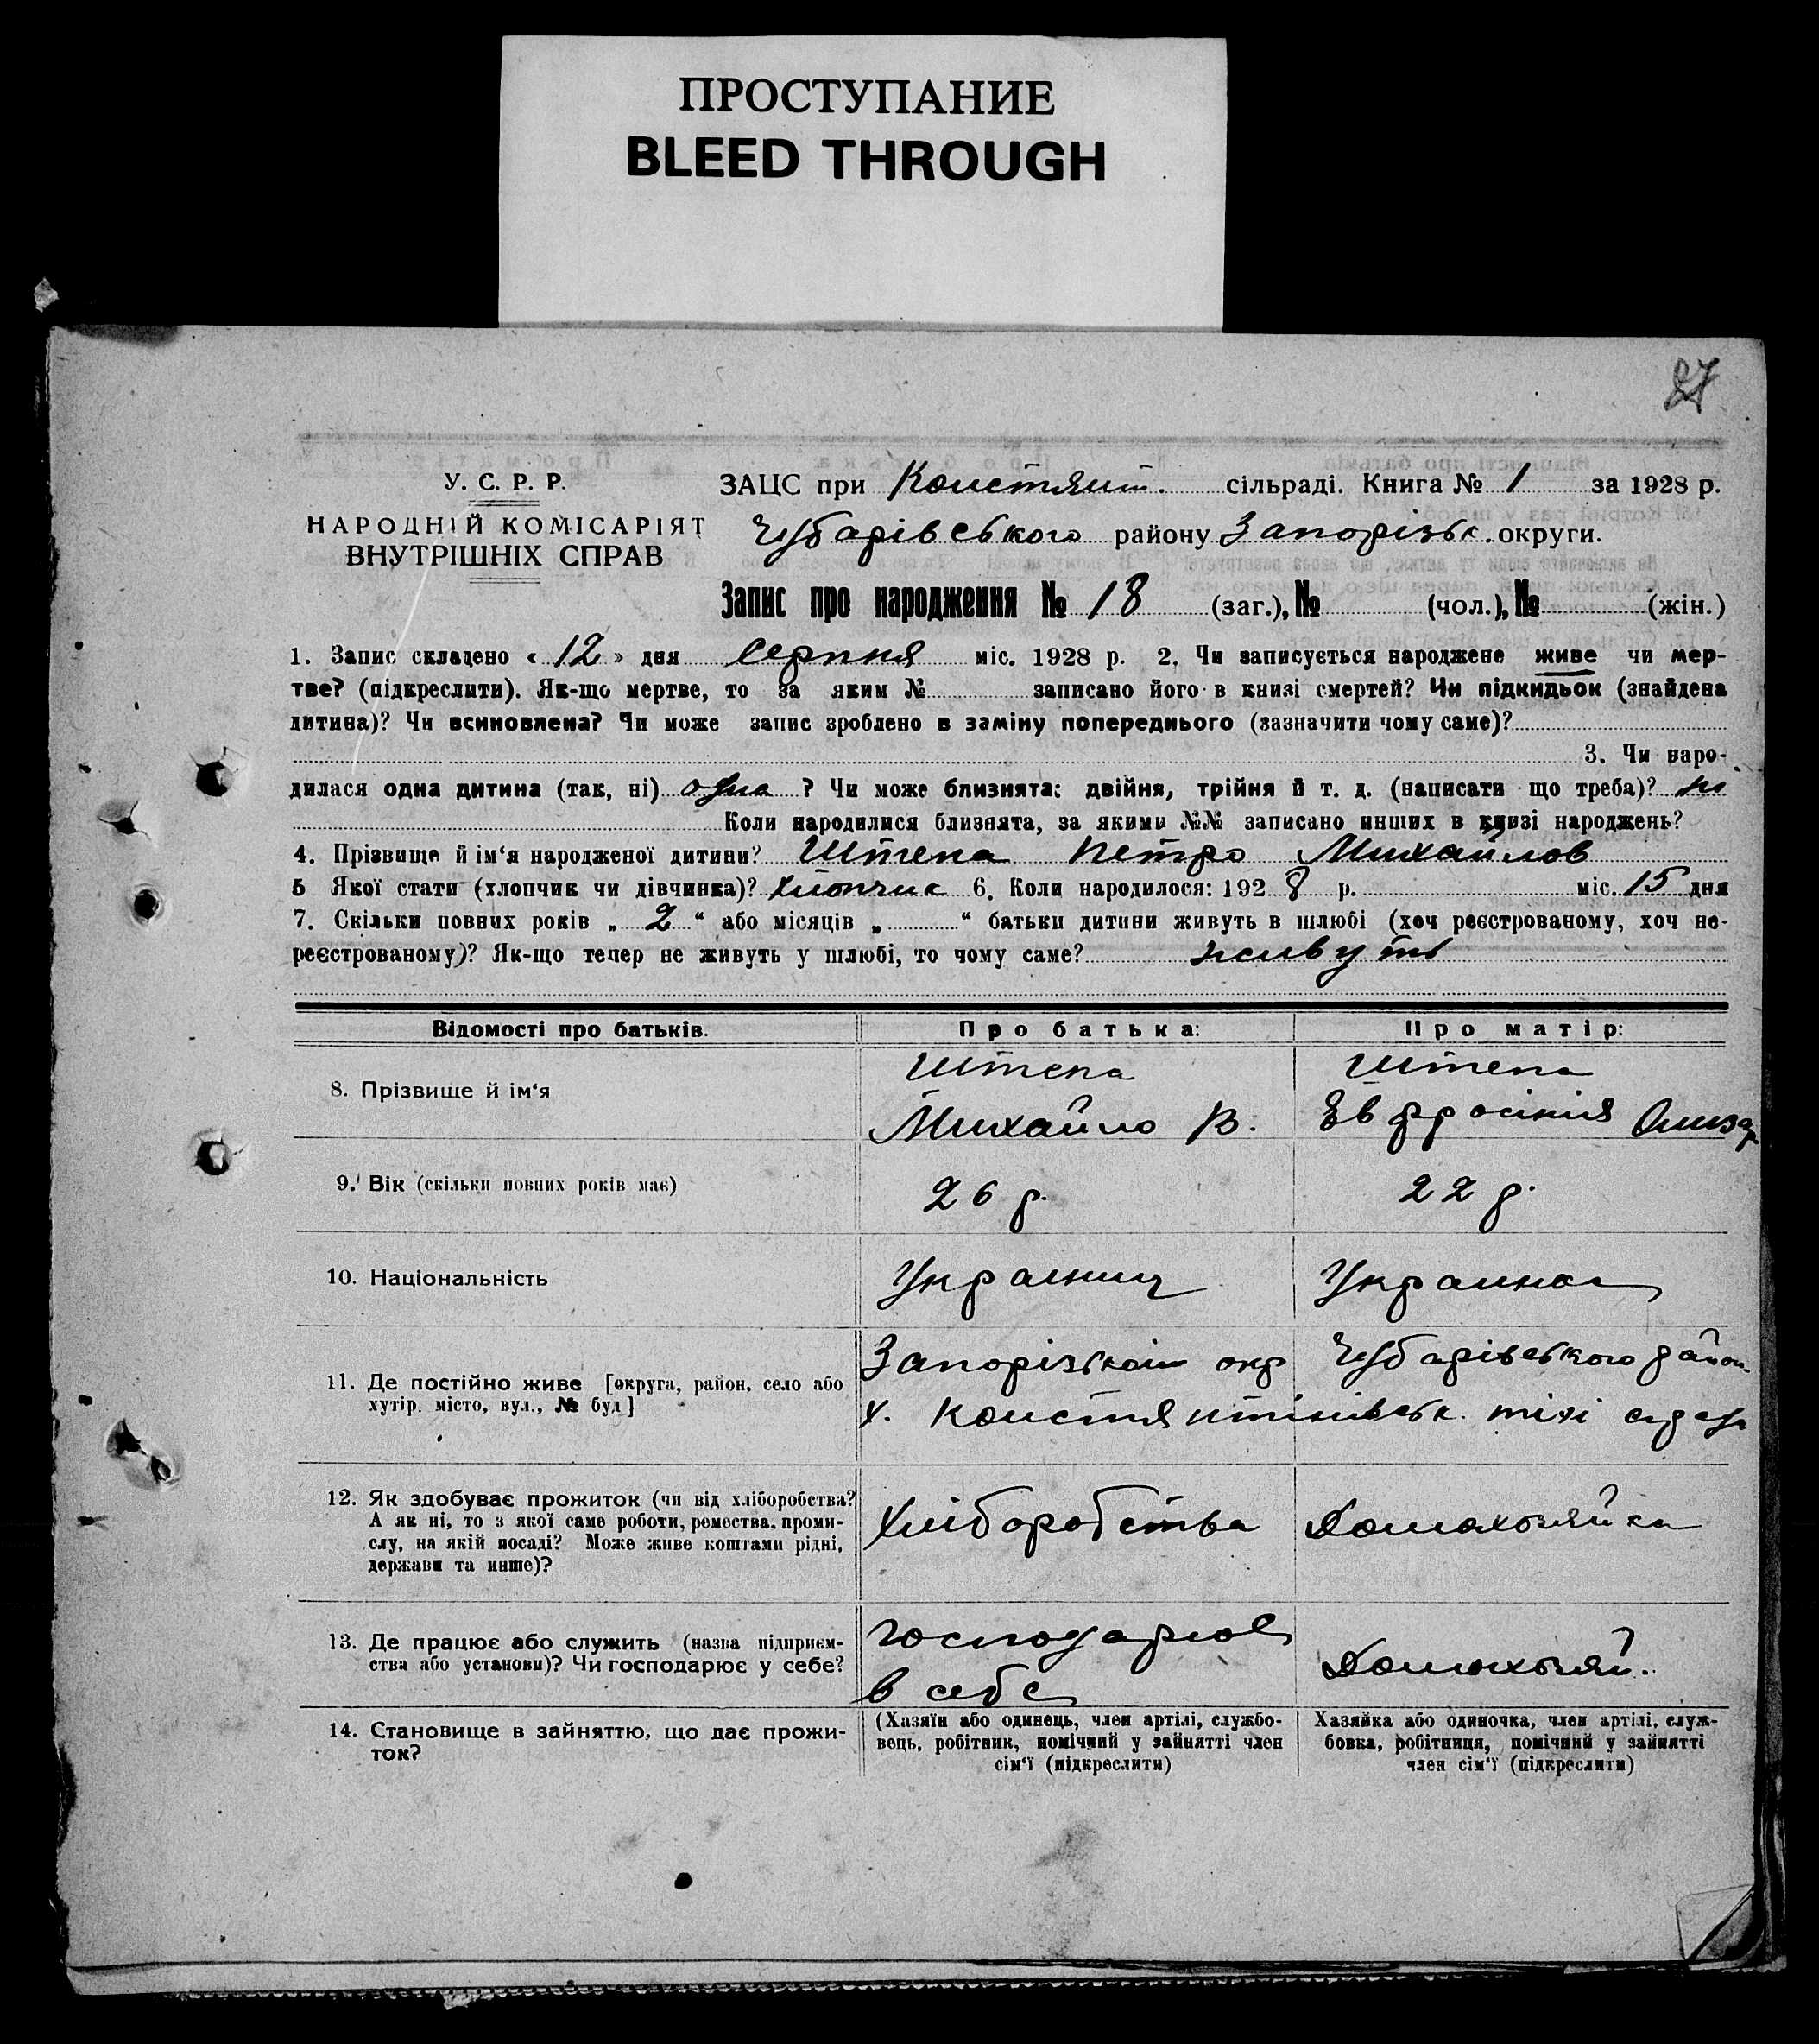 ПРОСТУПАНИЕ
BLEED THROUGH
27
У. С. Р. Р.
НАРОДНІЙ КОМІСАРІЯТ
ВНУТРІШНІХ СПРАВ
ЗАЦС при Констянт. сільраді. Книга № 1 за 1928 р.
Чубарівського району Запорізьк. округи.
Запис про народження № 18 (заг.), № (чол.), № (жін.)
1. Запис складено « 12 » дня серпня міс. 1928 р. 2. Чи записується народжене живе чи мер-
тве? (підкреслити). Як-що мертве, то за яким № записано його в книзі смертей? Чи підкидьок (знайдена
дитина)? Чи всиновлена? Чи може запис зроблено в заміну попереднього (зазначити чому саме)?
3. Чи наро-
дилася одна дитина (так, ні) одна ? Чи може близнята: двійня, трійня й т. д. (написати що треба)? ні
Коли народилися близнята, за якими №№ записано инших в книзі народжень?
4. Прізвище й ім‘я народженої дитини? Штепа Петро Михайлов
5 Якої стати (хлопчик чи дівчинка)? хлопчик 6. Коли народилося: 192 8 р. міс. 15 дня
7. Скільки повних років „ 2 “ або місяців „ “ батьки дитини живуть в шлюбі (хоч реєстрованому, хоч не-
реєстрованому)? Як-що тепер не живуть у шлюбі, то чому саме? живуть
Відомості про батьків. Про батька: Про матір:
8. Прізвище й ім‘я
Штепа
Михайло В.
Штепа
Евфросінія
9. Вік (скільки повних років має) 26 р. 22 р.
10. Національність Украинец Украинка
11. Де постійно живе [округа, район, село або
хутір. місто, вул., № буд]
Запорізькоі окр Чубарівського район.
х. Констянтінівськ. тіжі
12. Як здобуває прожиток (чи від хліборобства?
А як ні, то з якої саме роботи, ремества, проми-
слу, на якій посаді? Може живе коштами рідні,
держави та инше)?
Хліборобства Домохозяйка
13. Де працює або служить (назва підприєм-
ства або установи)? Чи господарює у себе?
господарює
в себе
Домохозяй.
14. Становище в зайняттю, що дає прожи-
ток?
(Хазяїн або одинець, член артілі, службо-
вець, робітник, помічний у зайнятті член
сім‘ї (підкреслити)
Хазяйка або одиночка, член артілі, служ-
бовка, робітниця, помічний у зайнятті
член сім‘ї (підкреслити)